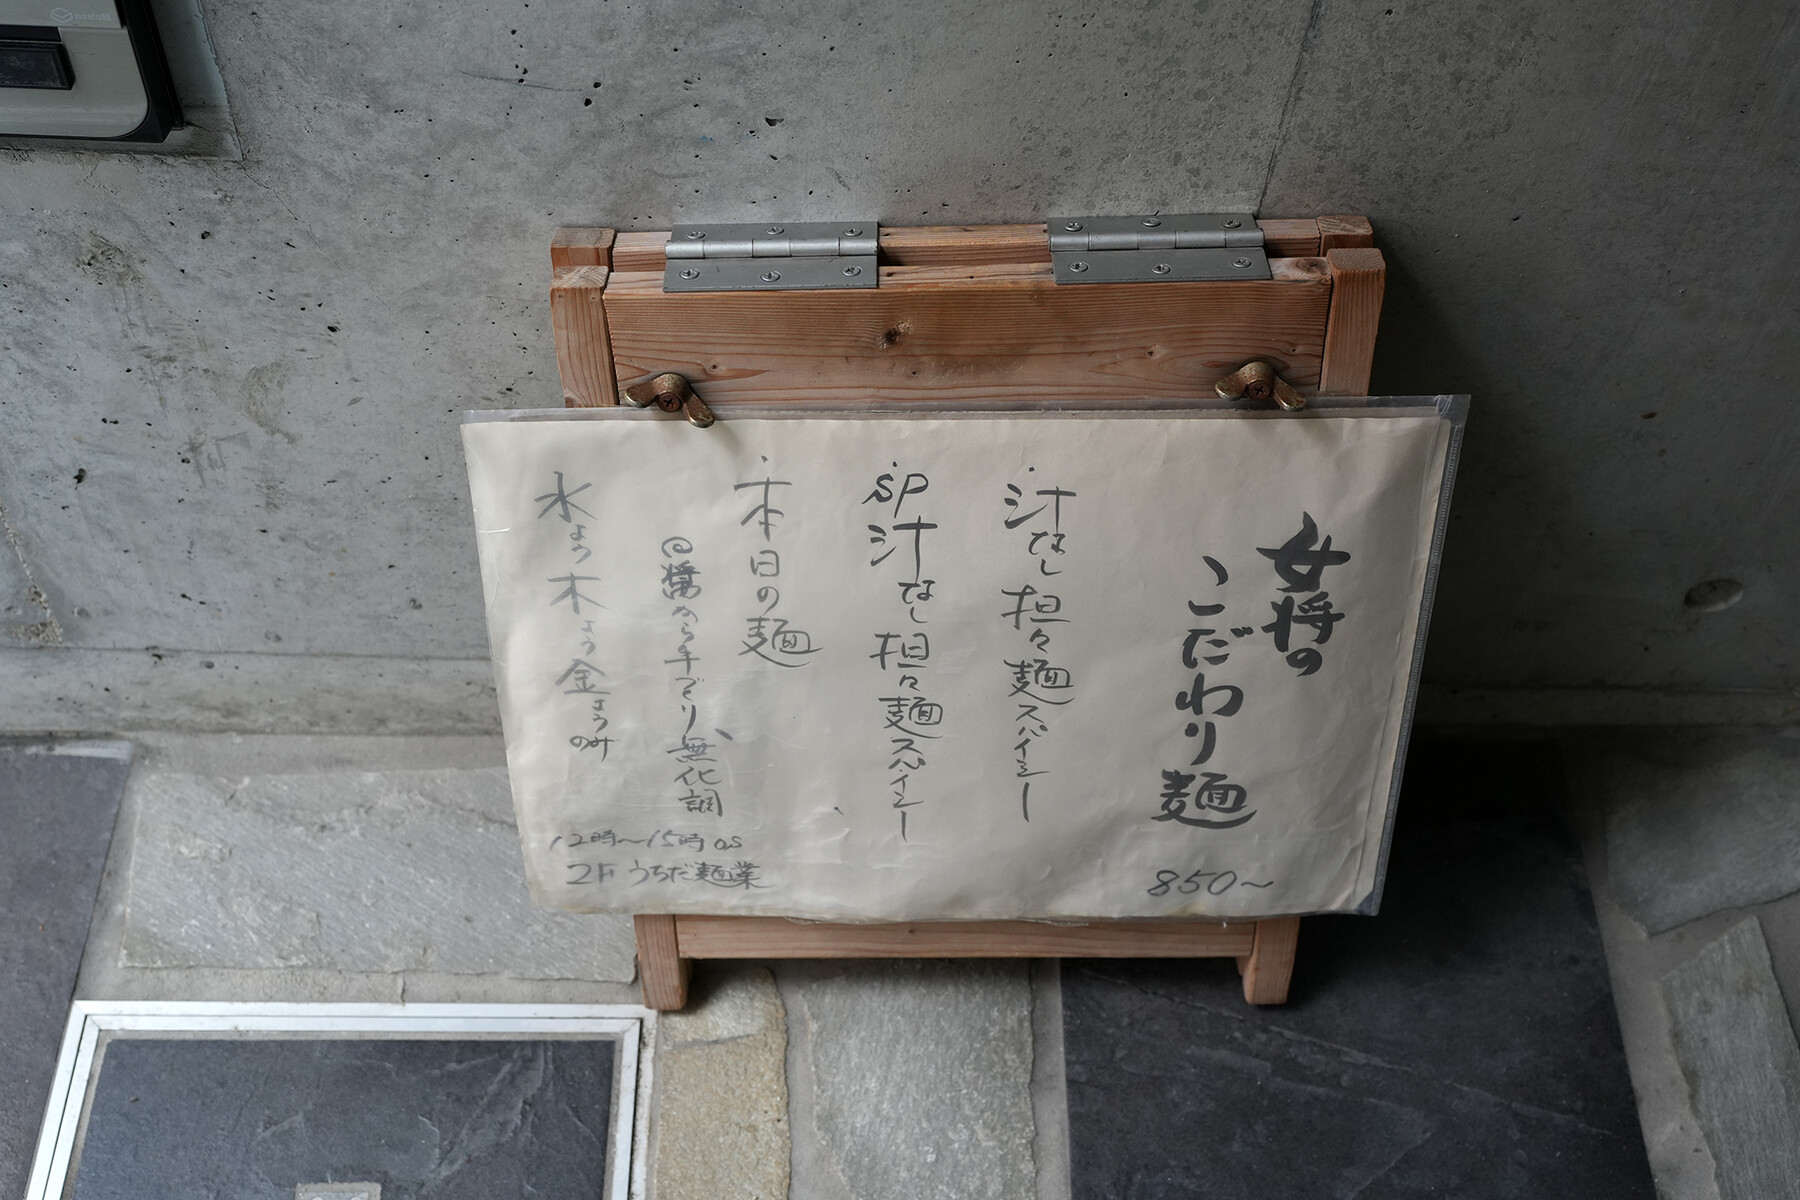 女将の
こだわり麺
850~
・汁なし担々麺スパイシー
・SP汁なし担々麺スパイシー
・本日の麺
@醤から手づくり、無化調
水よう木よう金ようのみ
12時~15時 os
2F うちだ麺業
nasta